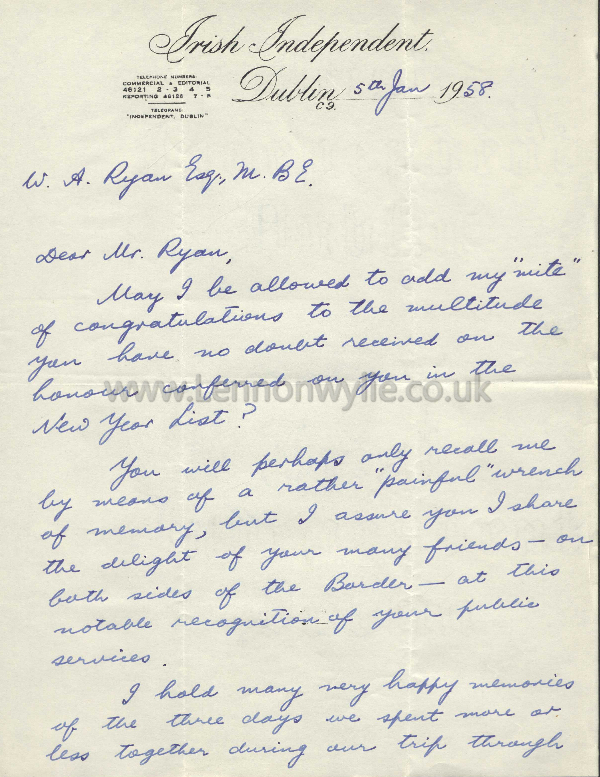 Irish Independent.
TELEPHONE NUMBERS:
COMMERCIAL & EDITORIAL
46121 2 - 3 4 5
REPORTING 46126 7 - 8
TELEGRAMS:
"INDEPENDENT, DUBLIN"
Dublin 5th Jan 1958.
C9.
W. A. Ryan Esq., M. B E.
Dear Mr. Ryan,
May I be allowed to add my "mite"
of congratulations to the multitude
you have no doubt received on the
honour conferred on you in the
New Year List?
www.Lennonwylie.co.uk
You will perhaps only recall me
by means of a rather "painful" wrench
of memory, but I assure you I share
the delight of your many friends – on
both sides of the Border – at this
notable recognition of your public
services.
I hold many very happy memories
of the three days we spent more or
less together during our trip through